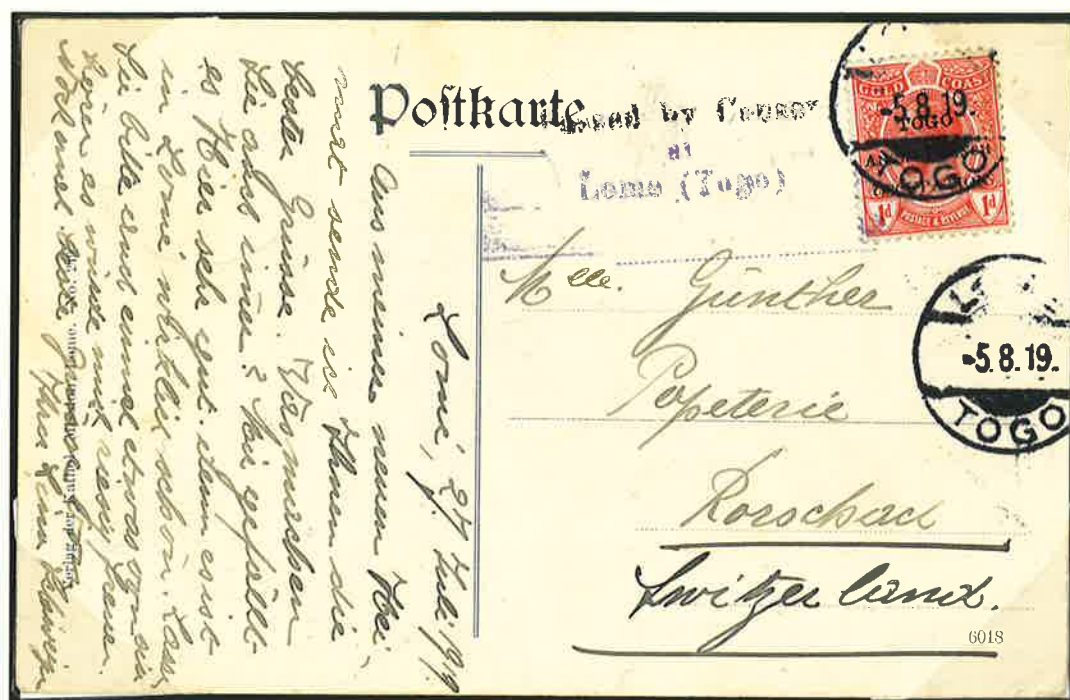 Postkarte
Passed by Censor
at
Lome (Togo)
GOLD COAST
TOGO
1d POSTAGE & REVENUE 1d
-5.8.19.
TOGO
-5.8.19.
TOGO
Mlle. Günther
Papeterie
Rorschach
Switzerland.
6018
Lomé, 27. Juli 1919
Aus meiner neuen Hei-
mat sende ich Ihnen die
besten Grüsse. Was machen
Sie alles immer? Mir gefällt
es hier sehr gut denn es ist
in Lomé wirklich schön. Lassen
Sie bitte auch einmal etwas von sich
hören es würde mich riesig freuen.
Nochmals beste Grüsse
Ihre Lina
Verlag der Kathol. Mission Lome, Togo.